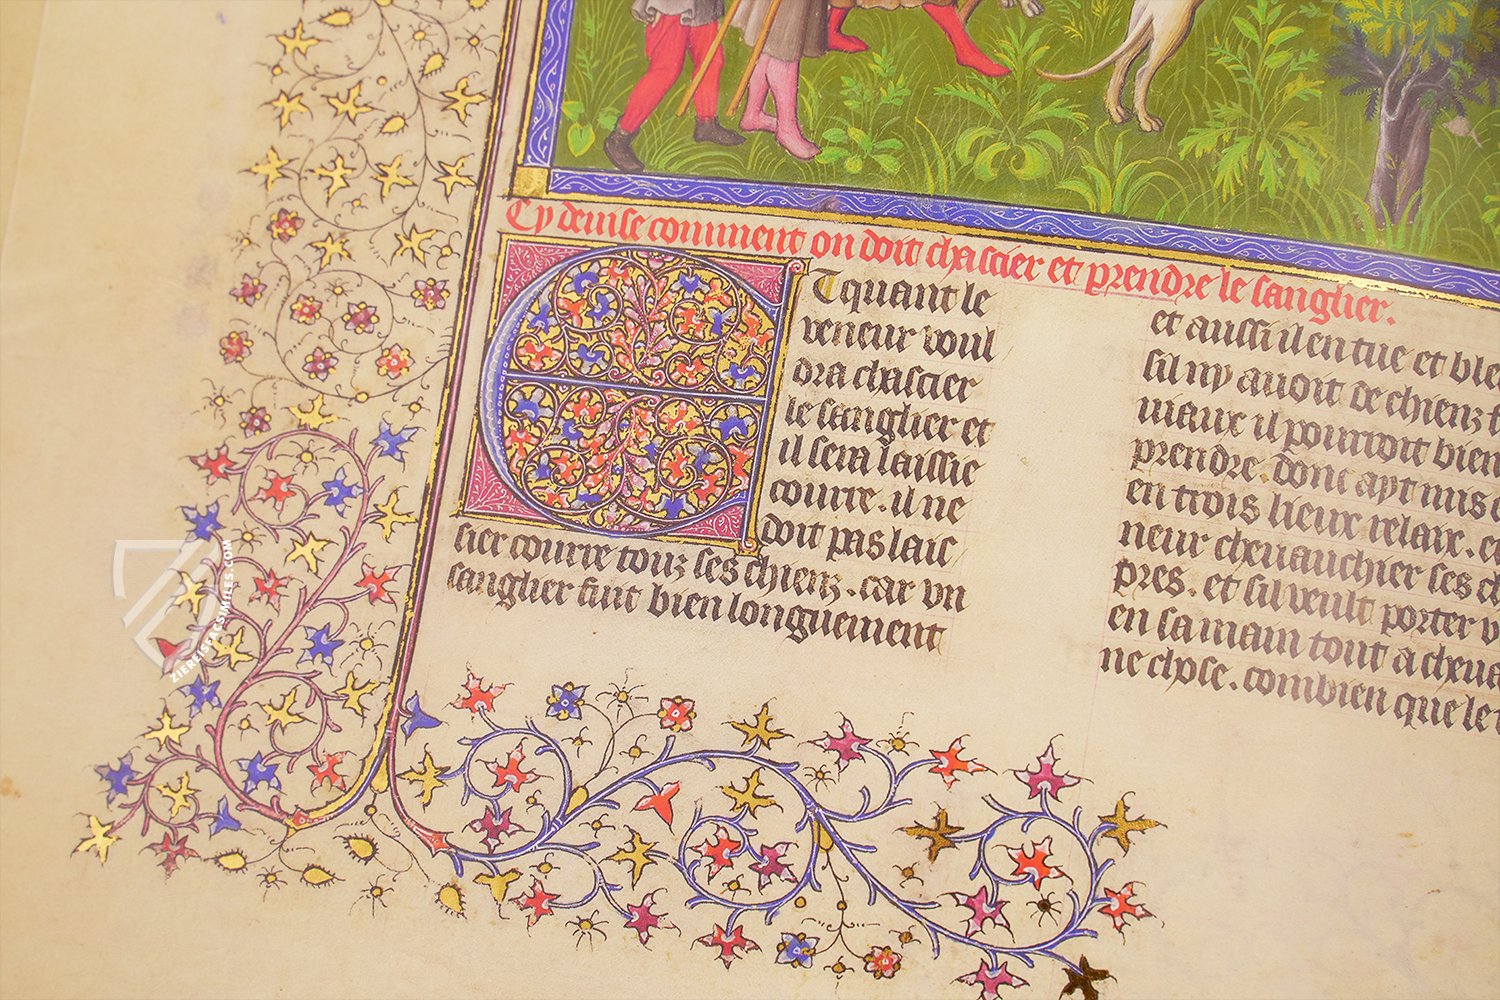 Cy deuise comment on doit chascier et prendre le sanglier.
Et quant le
veneur voul
dra chascier
le sanglier et
il sera laissie
courre. il ne
doit pas lais
sier courre touz ses chienz. car vn
sanglier fuit bien longuement
et aussi il en tue et ble
sil ny auoit de chienz
maux il pourroit bien
prendre. dont ayt mis
en trois lieux relaix. et
neur cheuauchier ses ch
pres. et sil veult porter v
en sa main tout a cheua
ne chose. combien que le
ZIEREISFACSIMILES.COM